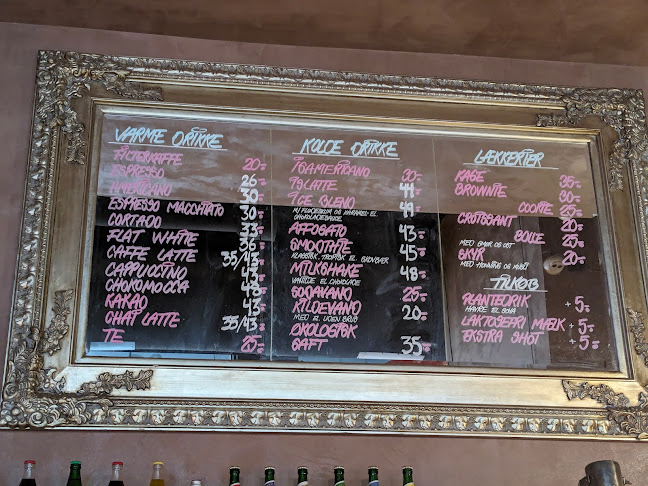 VARME DRIKKE
FILTERKAFFE 20:-
ESPRESSO 26:-
AMERICANO 30:-
ESPRESSO MACCHIATO 30:-
CORTADO 33:-
FLAT WHITE 36:-
CAFFE LATTE 35/43:-
CAPPUCCINO
CHOKOMOCCA 48:-
KAKAO 43:-
CHAI LATTE 35/43:-
TE 25:-
KOLDE DRIKKE
ISAMERICANO
ISLATTE 44:-
ICE BLEND 49:-
M/ FLØDESKUM OG KARAMEL EL
CHOKOLADESAUCE
AFFOGATO 43:-
SMOOTHIE 45:-
KLASSISK, TROPISK EL
MILKSHAKE 48:-
VANILJE EL CHOKOLADE
SODAVAND 25:-
KILDEVAND 20:-
MED EL UDEN BRUS
ØKOLOGISK
SAFT 35:-
LÆKKERIER
KAGE 35:-
BROWNIE 30:-
COOKIE 25:-
CROISSANT 20:-
BOLLE 25:-
MED SMØR OG OST
SKYR 20:-
MED HONNING OG MÜSLI
TILKØB
PLANTEDRIK +5:-
HAVRE EL SOYA
LAKTOSEFRI MÆLK +5:-
EKSTRA SHOT +5:-